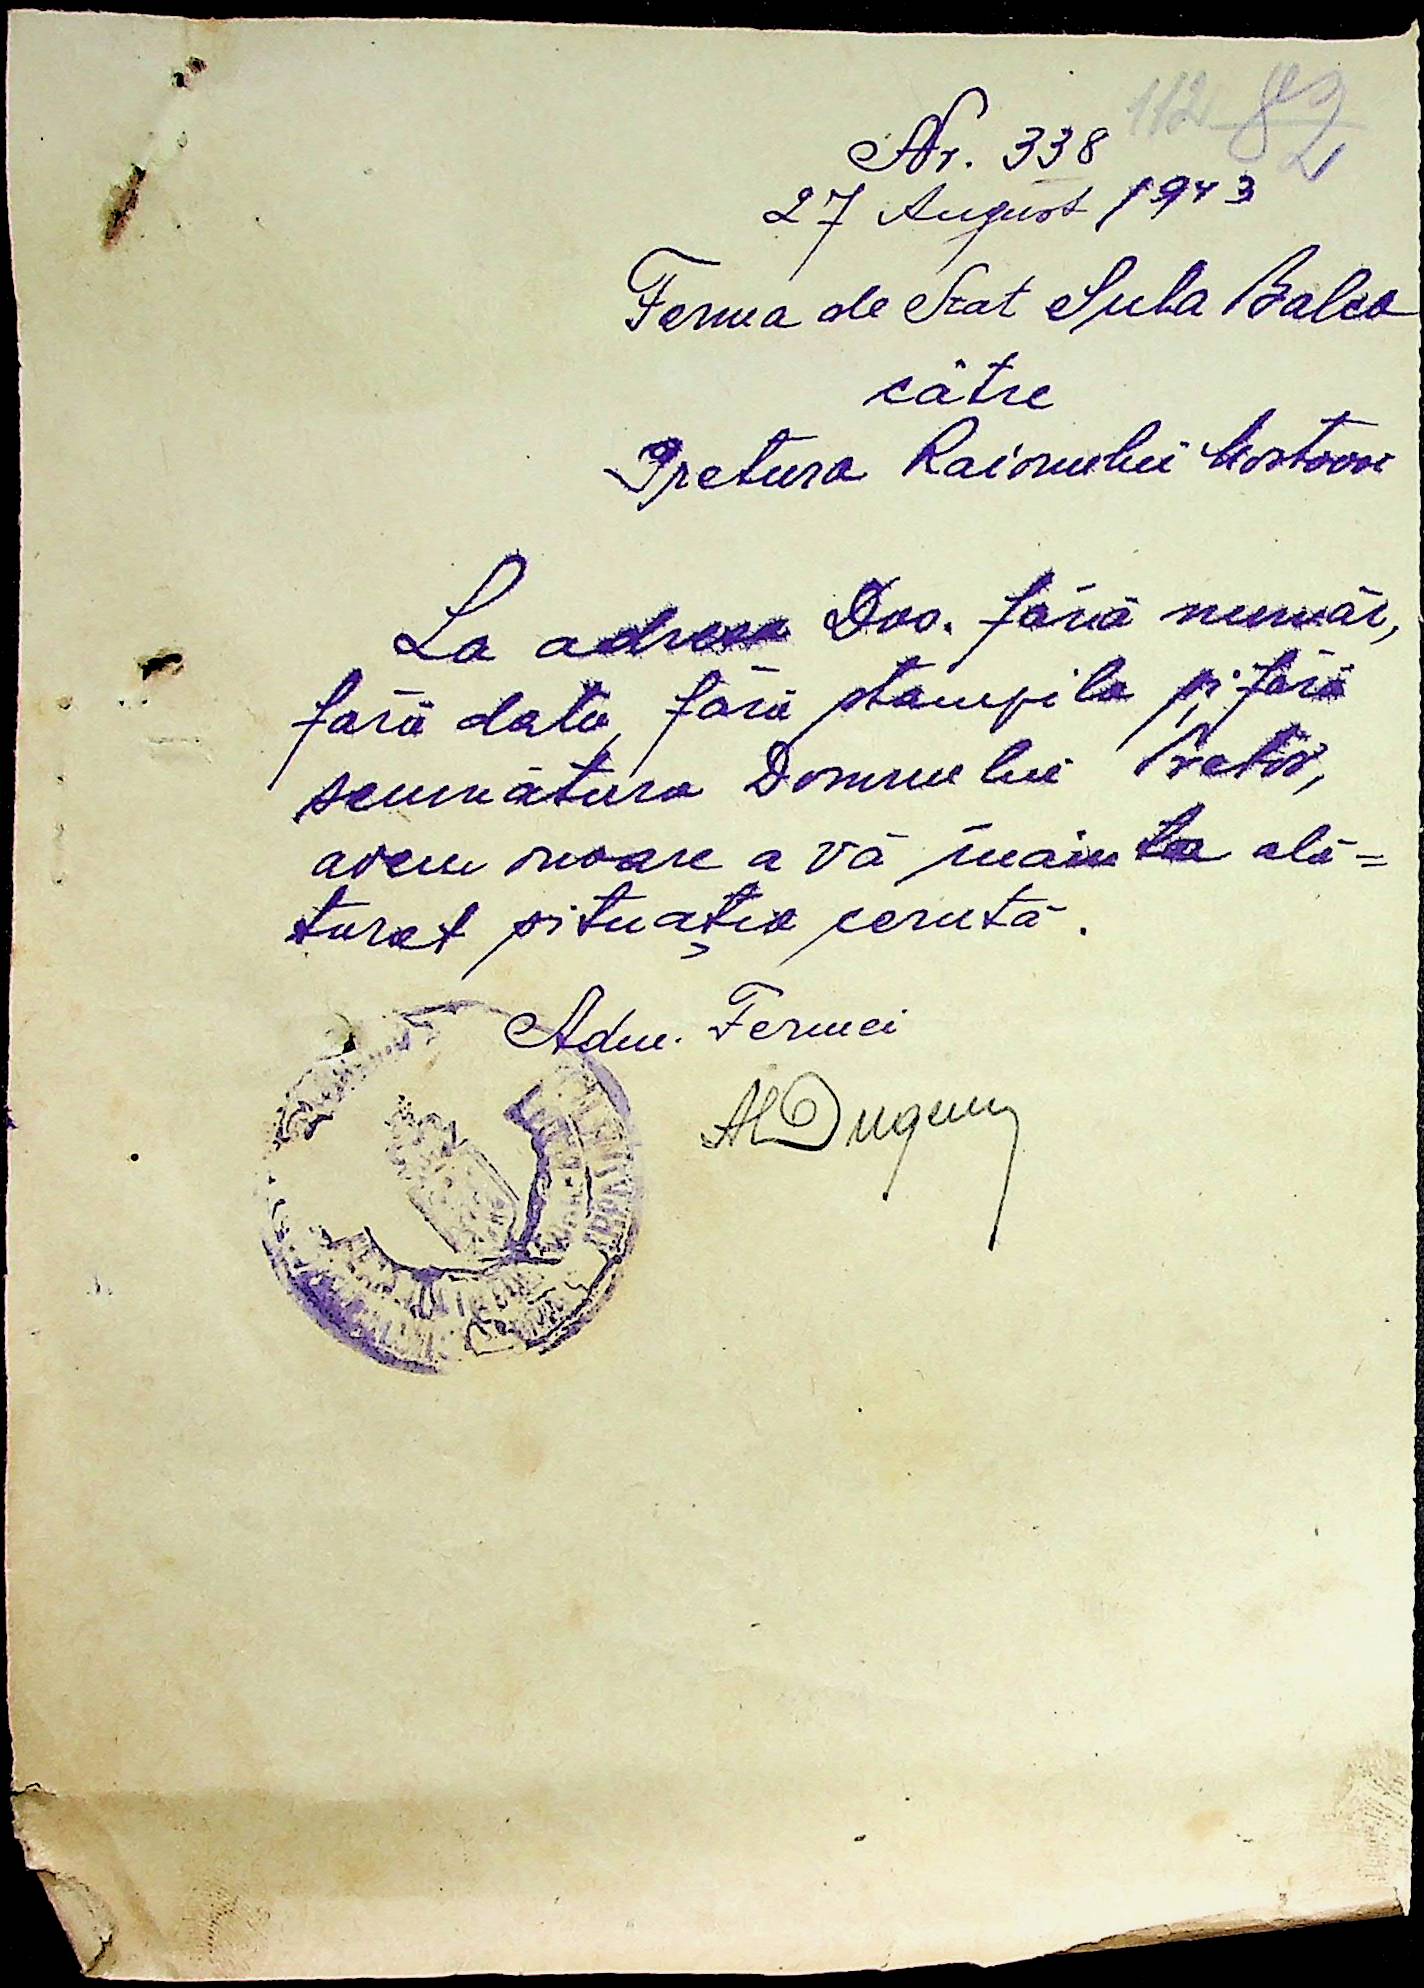 112 82
Nr. 338
27 August 1943
Ferma de Stat Suha Balca
către
Pretura Raionului Mostovoi
La adresa Dvo. fără număr,
fără data, fără ștampila și fără
semnătura Domnului Pretor,
avem onoare a vă înainta ală=
turat situația cerută.
Adm. Fermei